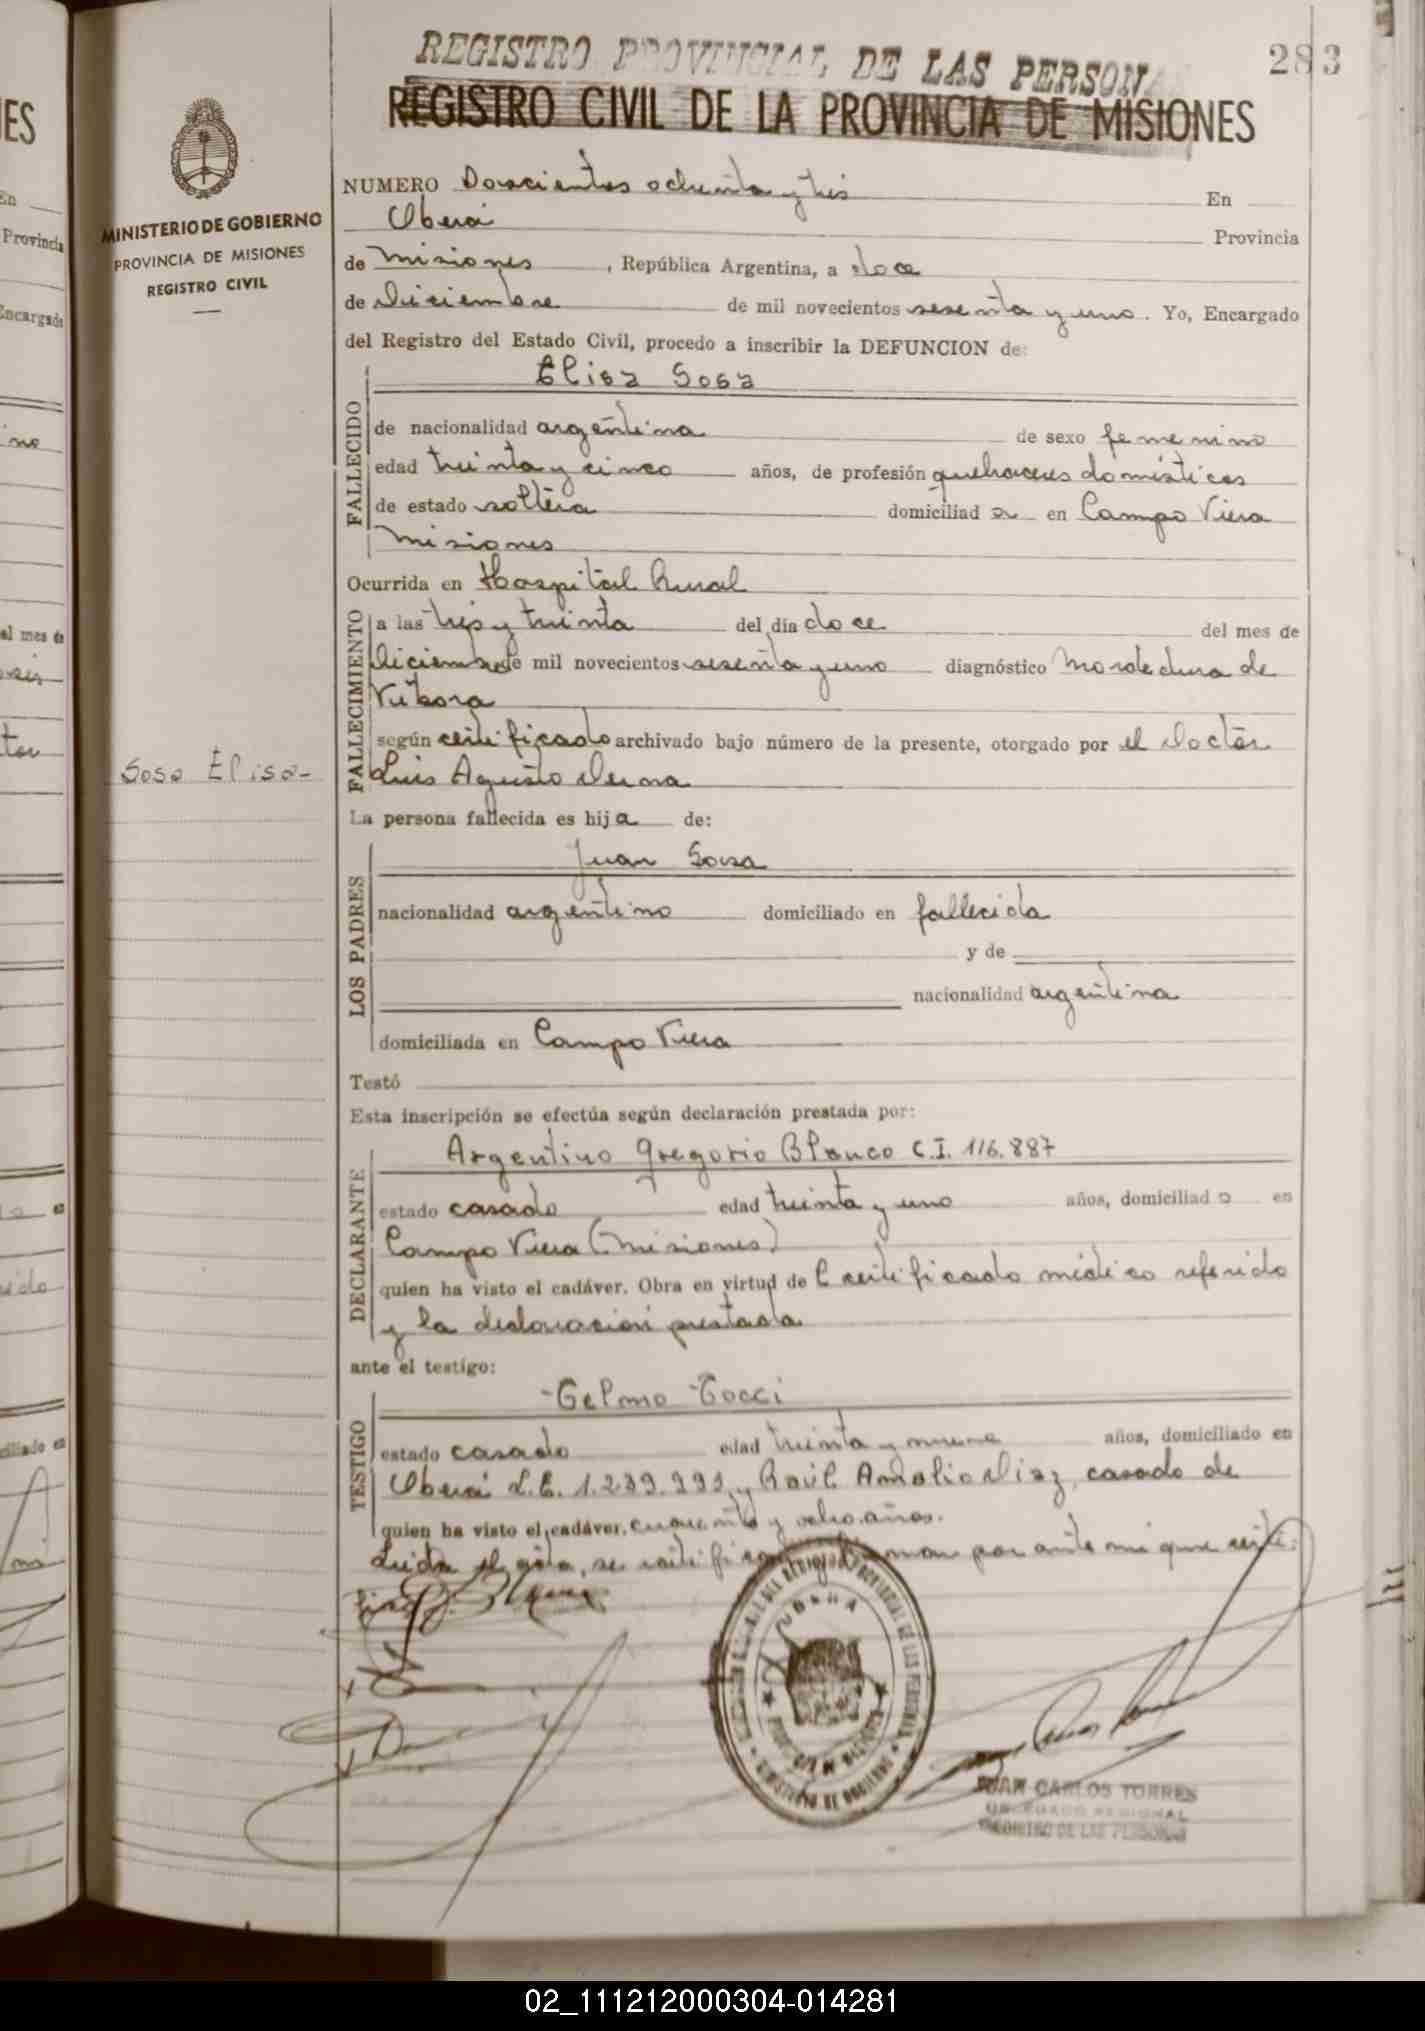 REGISTRO PROVINCIAL DE LAS PERSONAS
283
REGISTRO CIVIL DE LA PROVINCIA DE MISIONES
MINISTERIO DE GOBIERNO
PROVINCIA DE MISIONES
REGISTRO CIVIL
NUMERO Doscientos ochenta y tres En
Oberá Provincia
de Misiones, República Argentina, a doce
de Diciembre de mil novecientos sesenta y uno. Yo, Encargado
del Registro del Estado Civil, procedo a inscribir la DEFUNCION de:
Elisa Sosa
FALLECIDO
de nacionalidad argentina de sexo femenino
edad treinta y cinco años, de profesión quehaceres domésticos
de estado soltera domiciliad a en Campo Viera
Misiones
Ocurrida en Hospital Rural
FALLECIMIENTO
a las tres y treinta del día doce del mes de
Diciembre de mil novecientos sesenta y uno diagnóstico Mordedura de
Víbora
según certificado archivado bajo número de la presente, otorgado por el Doctor
Luis Agusto
Sosa Elisa-
La persona fallecida es hij a de:
LOS PADRES
Juan Sosa
nacionalidad argentino domiciliado en fallecido
y de
nacionalidad argentina
domiciliada en Campo Viera
Testó
Esta inscripción se efectúa según declaración prestada por:
DECLARANTE
Argentino Gregorio Blanco C.I. 116.887
estado casado edad treinta y uno años, domiciliad o en
Campo Viera (Misiones)
quien ha visto el cadáver. Obra en virtud de l certificado médico referido
y la declaración prestada
ante el testigo:
TESTIGO
-Telmo Tocci
estado casado edad treinta y nueve años, domiciliado en
Oberá L.E. 1.239.993 y Raúl Amalio Diaz, casado de
quien ha visto el cadáver. cuarenta y ocho años.
Leida el acta, se por ante mi que certi-
fico
JUAN CARLOS TORRES
DELEGADO REGIONAL
REGISTRO DE LAS PERSONAS
02_111212000304-014281